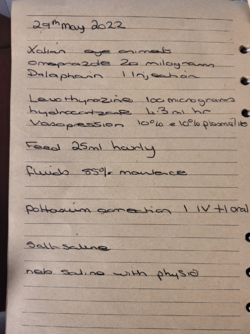 29th May 2022
eye
omeprazole 20 milograms
Dalaparin 1 Injection
Levothyrozine 100 micrograms
hydrocortizone 4.3 ml hr
Vasopression 10% e 10%
Feed 25ml hourly
fluids 55%
Pottasium correction 1 IV + 1 oral
saline
neb saline with physio